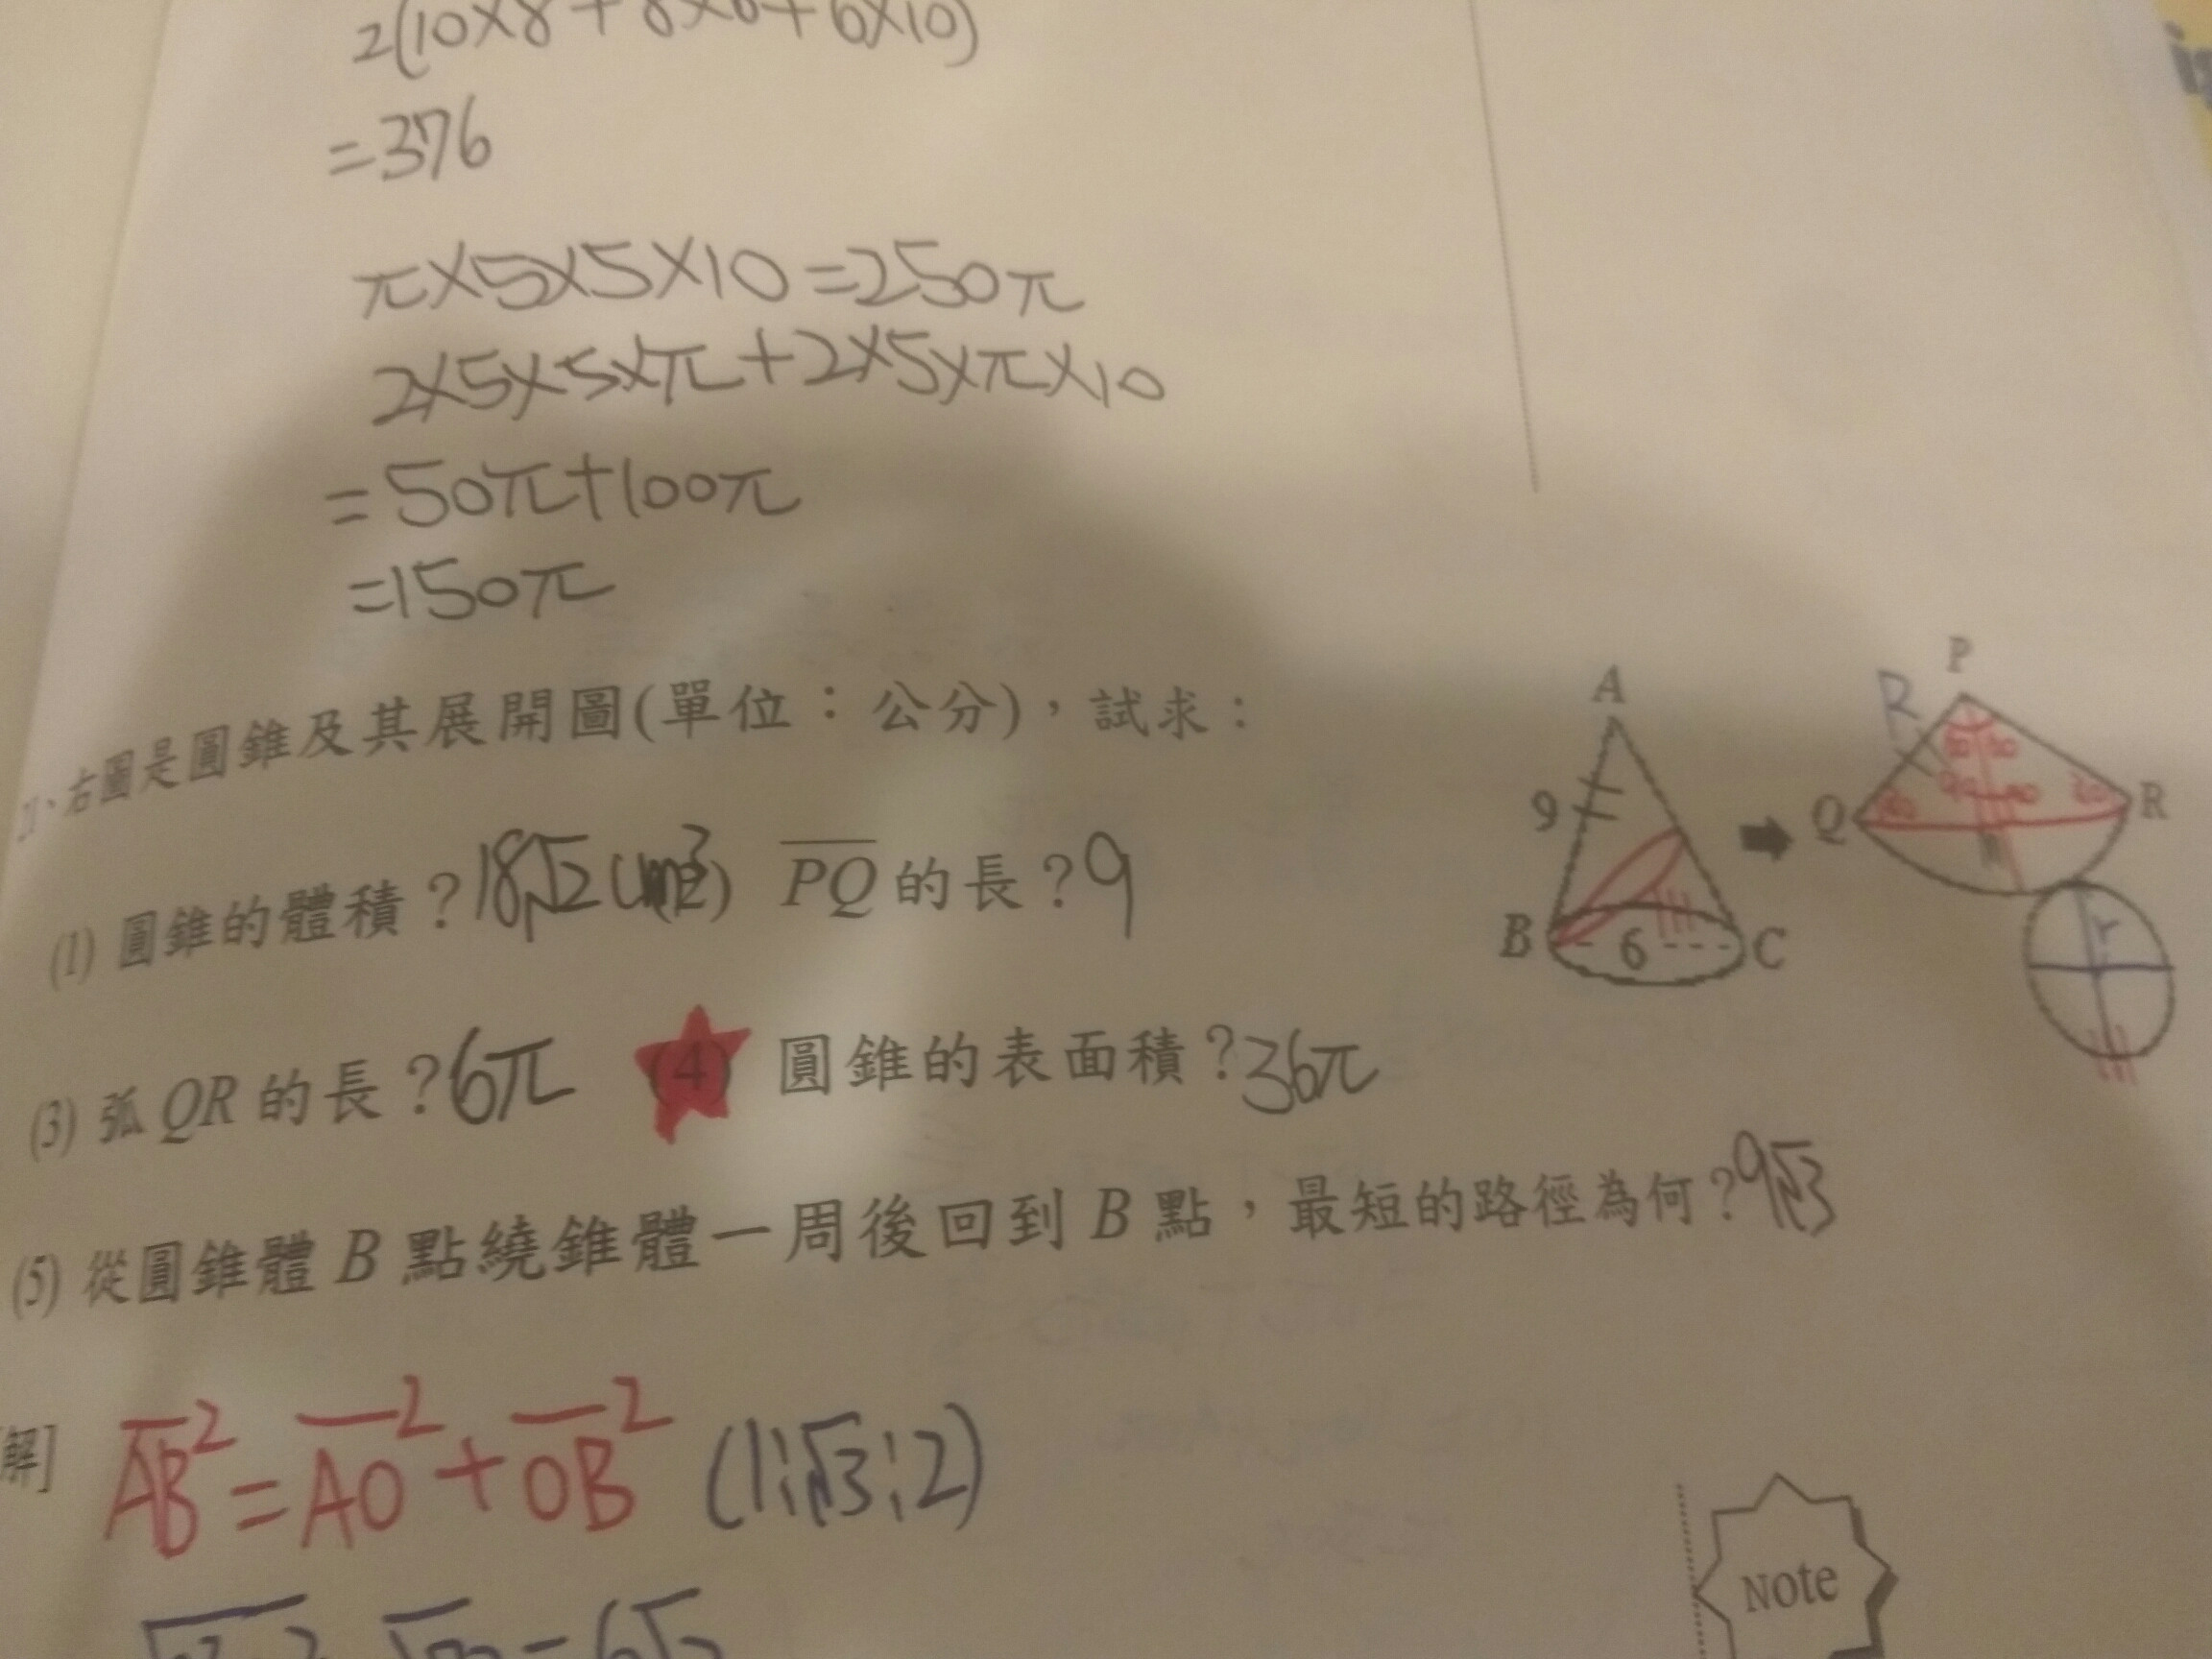 2(10×8+8×6+6×10)
=376
π×5×5×10=250π
2×5×5×π+2×5×π×10
=50π+100π
=150π
21、右圖是圓錐及其展開圖(單位:公分),試求:
(1) 圓錐的體積?18√2 (cm³) PQ 的長?9
(3) 弧 QR 的長?6π (4) 圓錐的表面積?36π
(5) 從圓錐體 B 點繞錐體一周後回到 B 點,最短的路徑為何?9√3
A
9
B
6
C
P
R
60 60
Q
R
r
[解] AB²=AO²+OB² (1:√3:2)
Note